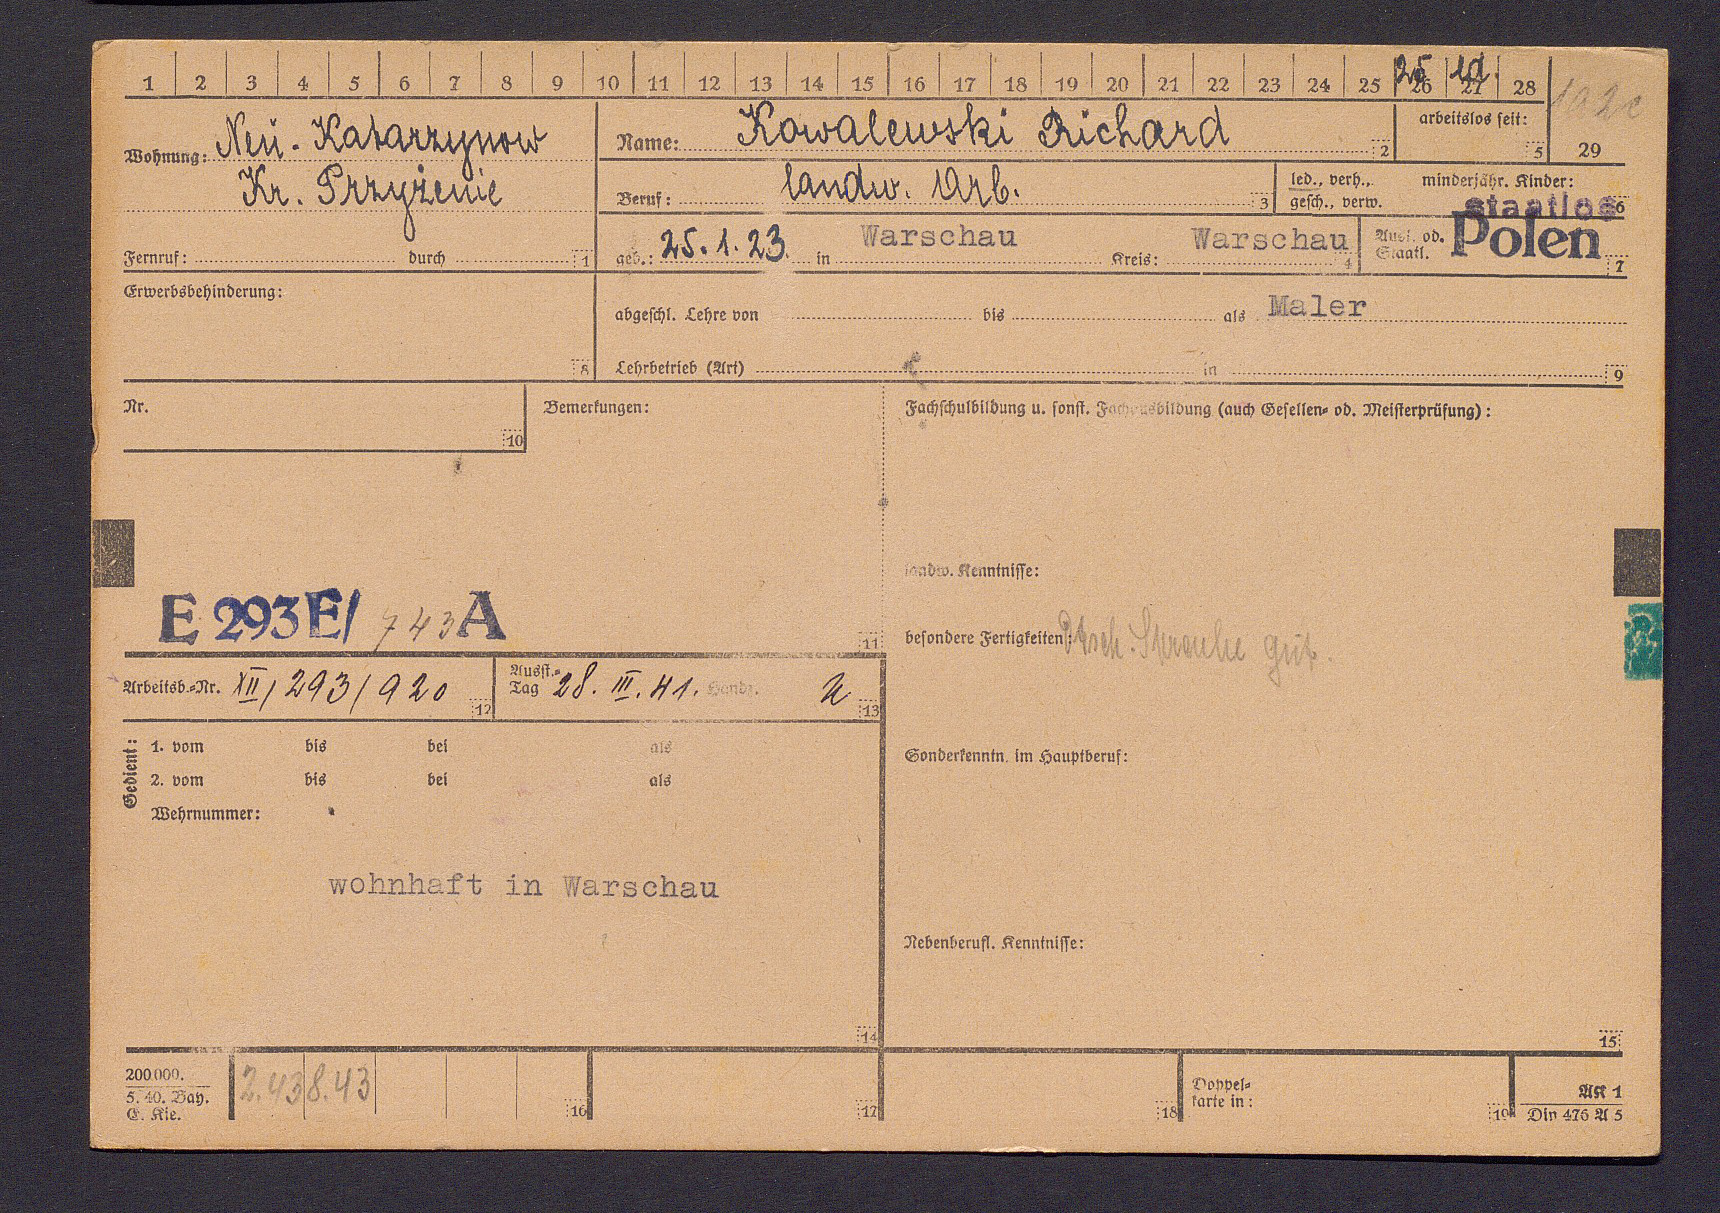 1 2 3 4 5 6 7 8 9 10 11 12 13 14 15 16 17 18 19 20 21 22 23 24 25 26 27 28
25 1a.
Wohnung: Neu-Katarzynow
Kr. Przyżenie
Fernruf: durch 1
Name: Kowalewski Richard 2
arbeitslos seit: 5
29
Beruf: landw. Arb. 3
led., verh., minderjähr. Kinder:
gesch., verw. 6
staatlos
geb.: 25.1.23. in Warschau Kreis: Warschau 4
Ausl. od. Staatl. Polen 7
Erwerbsbehinderung: 8
abgeschl. Lehre von bis als Maler
Lehrbetrieb (Art) in 9
Nr. 10
Bemerkungen:
Fachschulbildung u. sonst. Fachausbildung (auch Gesellen- od. Meisterprüfung):
landw. Kenntnisse:
E 293 E/ 743 A
11
besondere Fertigkeiten: Dtsch. Sprache gut.
Arbeitsb.-Nr. XII/293/920 12
Ausst.-Tag 28. III. 41. Handz. 13
Gedient:
1. vom bis bei als
2. vom bis bei als
Wehrnummer:
Sonderkenntn. im Hauptberuf:
wohnhaft in Warschau
Nebenberufl. Kenntnisse:
14
15
200.000.
5. 40. Bay.
C. Kie.
2.43 8.43
16
17
18
Doppel-
karte in:
19
AK 1
Din 476 A 5